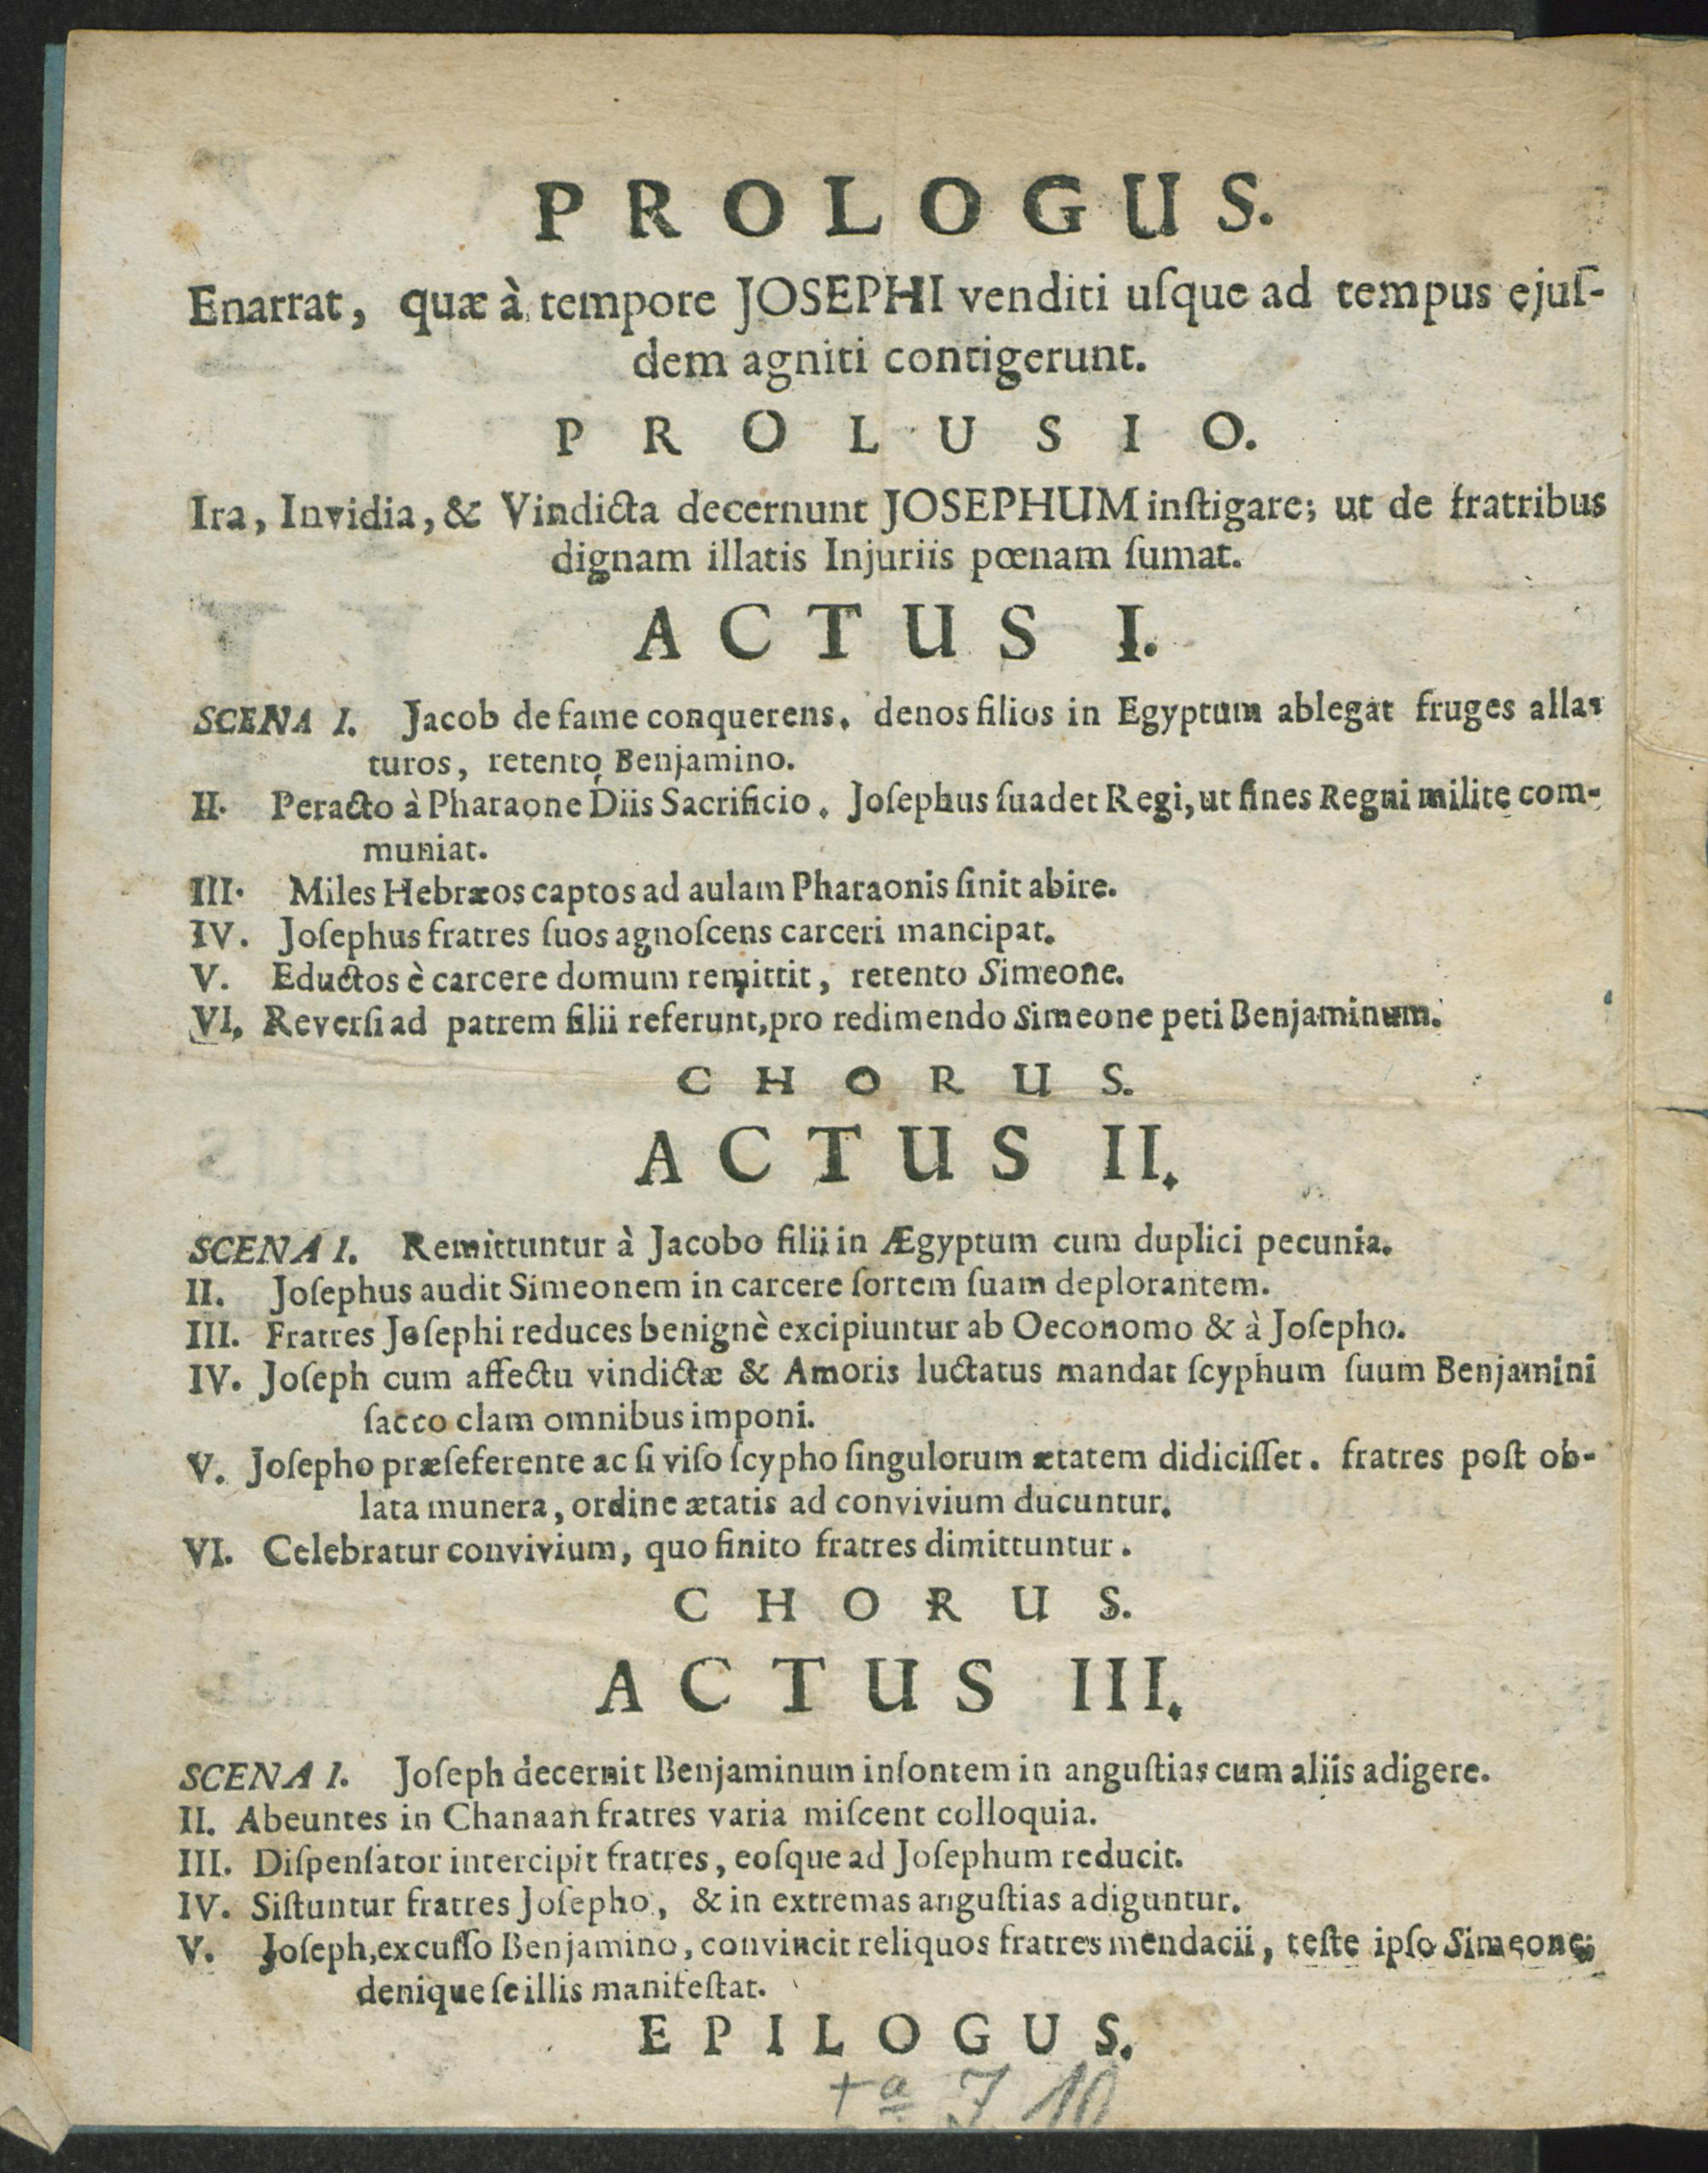 PROLOGUS.
Enarrat, quæ à tempore JOSEPHI venditi uſque ad tempus ejuſ-
dem agniti contigerunt.
PROLUSIO.
Ira, Invidia, & Vindicta decernunt JOSEPHUM inſtigare; ut de fratribus
dignam illatis Injuriis pœnam ſumat.
ACTUS I.
SCENA I. Jacob de fame conquerens. denos filios in Egyptum ablegat fruges alla-
turos, retento Benjamino.
II. Peracto à Pharaone Diis Sacrificio. Joſephus ſuadet Regi, ut fines Regni milite com-
muniat.
III. Miles Hebræos captos ad aulam Pharaonis ſinit abire.
IV. Joſephus fratres ſuos agnoſcens carceri mancipat.
V. Eductos è carcere domum remittit, retento Simeone.
VI. Reverſi ad patrem filii referunt, pro redimendo Simeone peti Benjaminum.
CHORUS.
ACTUS II.
SCENA I. Remittuntur à Jacobo filii in Ægyptum cum duplici pecunia.
II. Joſephus audit Simeonem in carcere ſortem ſuam deplorantem.
III. Fratres Joſephi reduces benignè excipiuntur ab Oeconomo & à Joſepho.
IV. Joſeph cum affectu vindictæ & Amoris luctatus mandat ſcyphum ſuum Benjamini
ſacco clam omnibus imponi.
V. Joſepho præſeferente ac ſi viſo ſcypho ſingulorum ætatem didiciſſet. fratres poſt ob-
lata munera, ordine ætatis ad convivium ducuntur.
VI. Celebratur convivium, quo finito fratres dimittuntur.
CHORUS.
ACTUS III.
SCENA I. Joſeph decernit Benjaminum inſontem in anguſtias cum aliis adigere.
II. Abeuntes in Chanaan fratres varia miſcent colloquia.
III. Diſpenſator intercipit fratres, eoſque ad Joſephum reducit.
IV. Siſtuntur fratres Joſepho, & in extremas anguſtias adiguntur.
V. Joſeph, excuſſo Benjamino, convincit reliquos fratres mendacii, teſte ipſo Simeone;
denique ſe illis manifeſtat.
EPILOGUS.